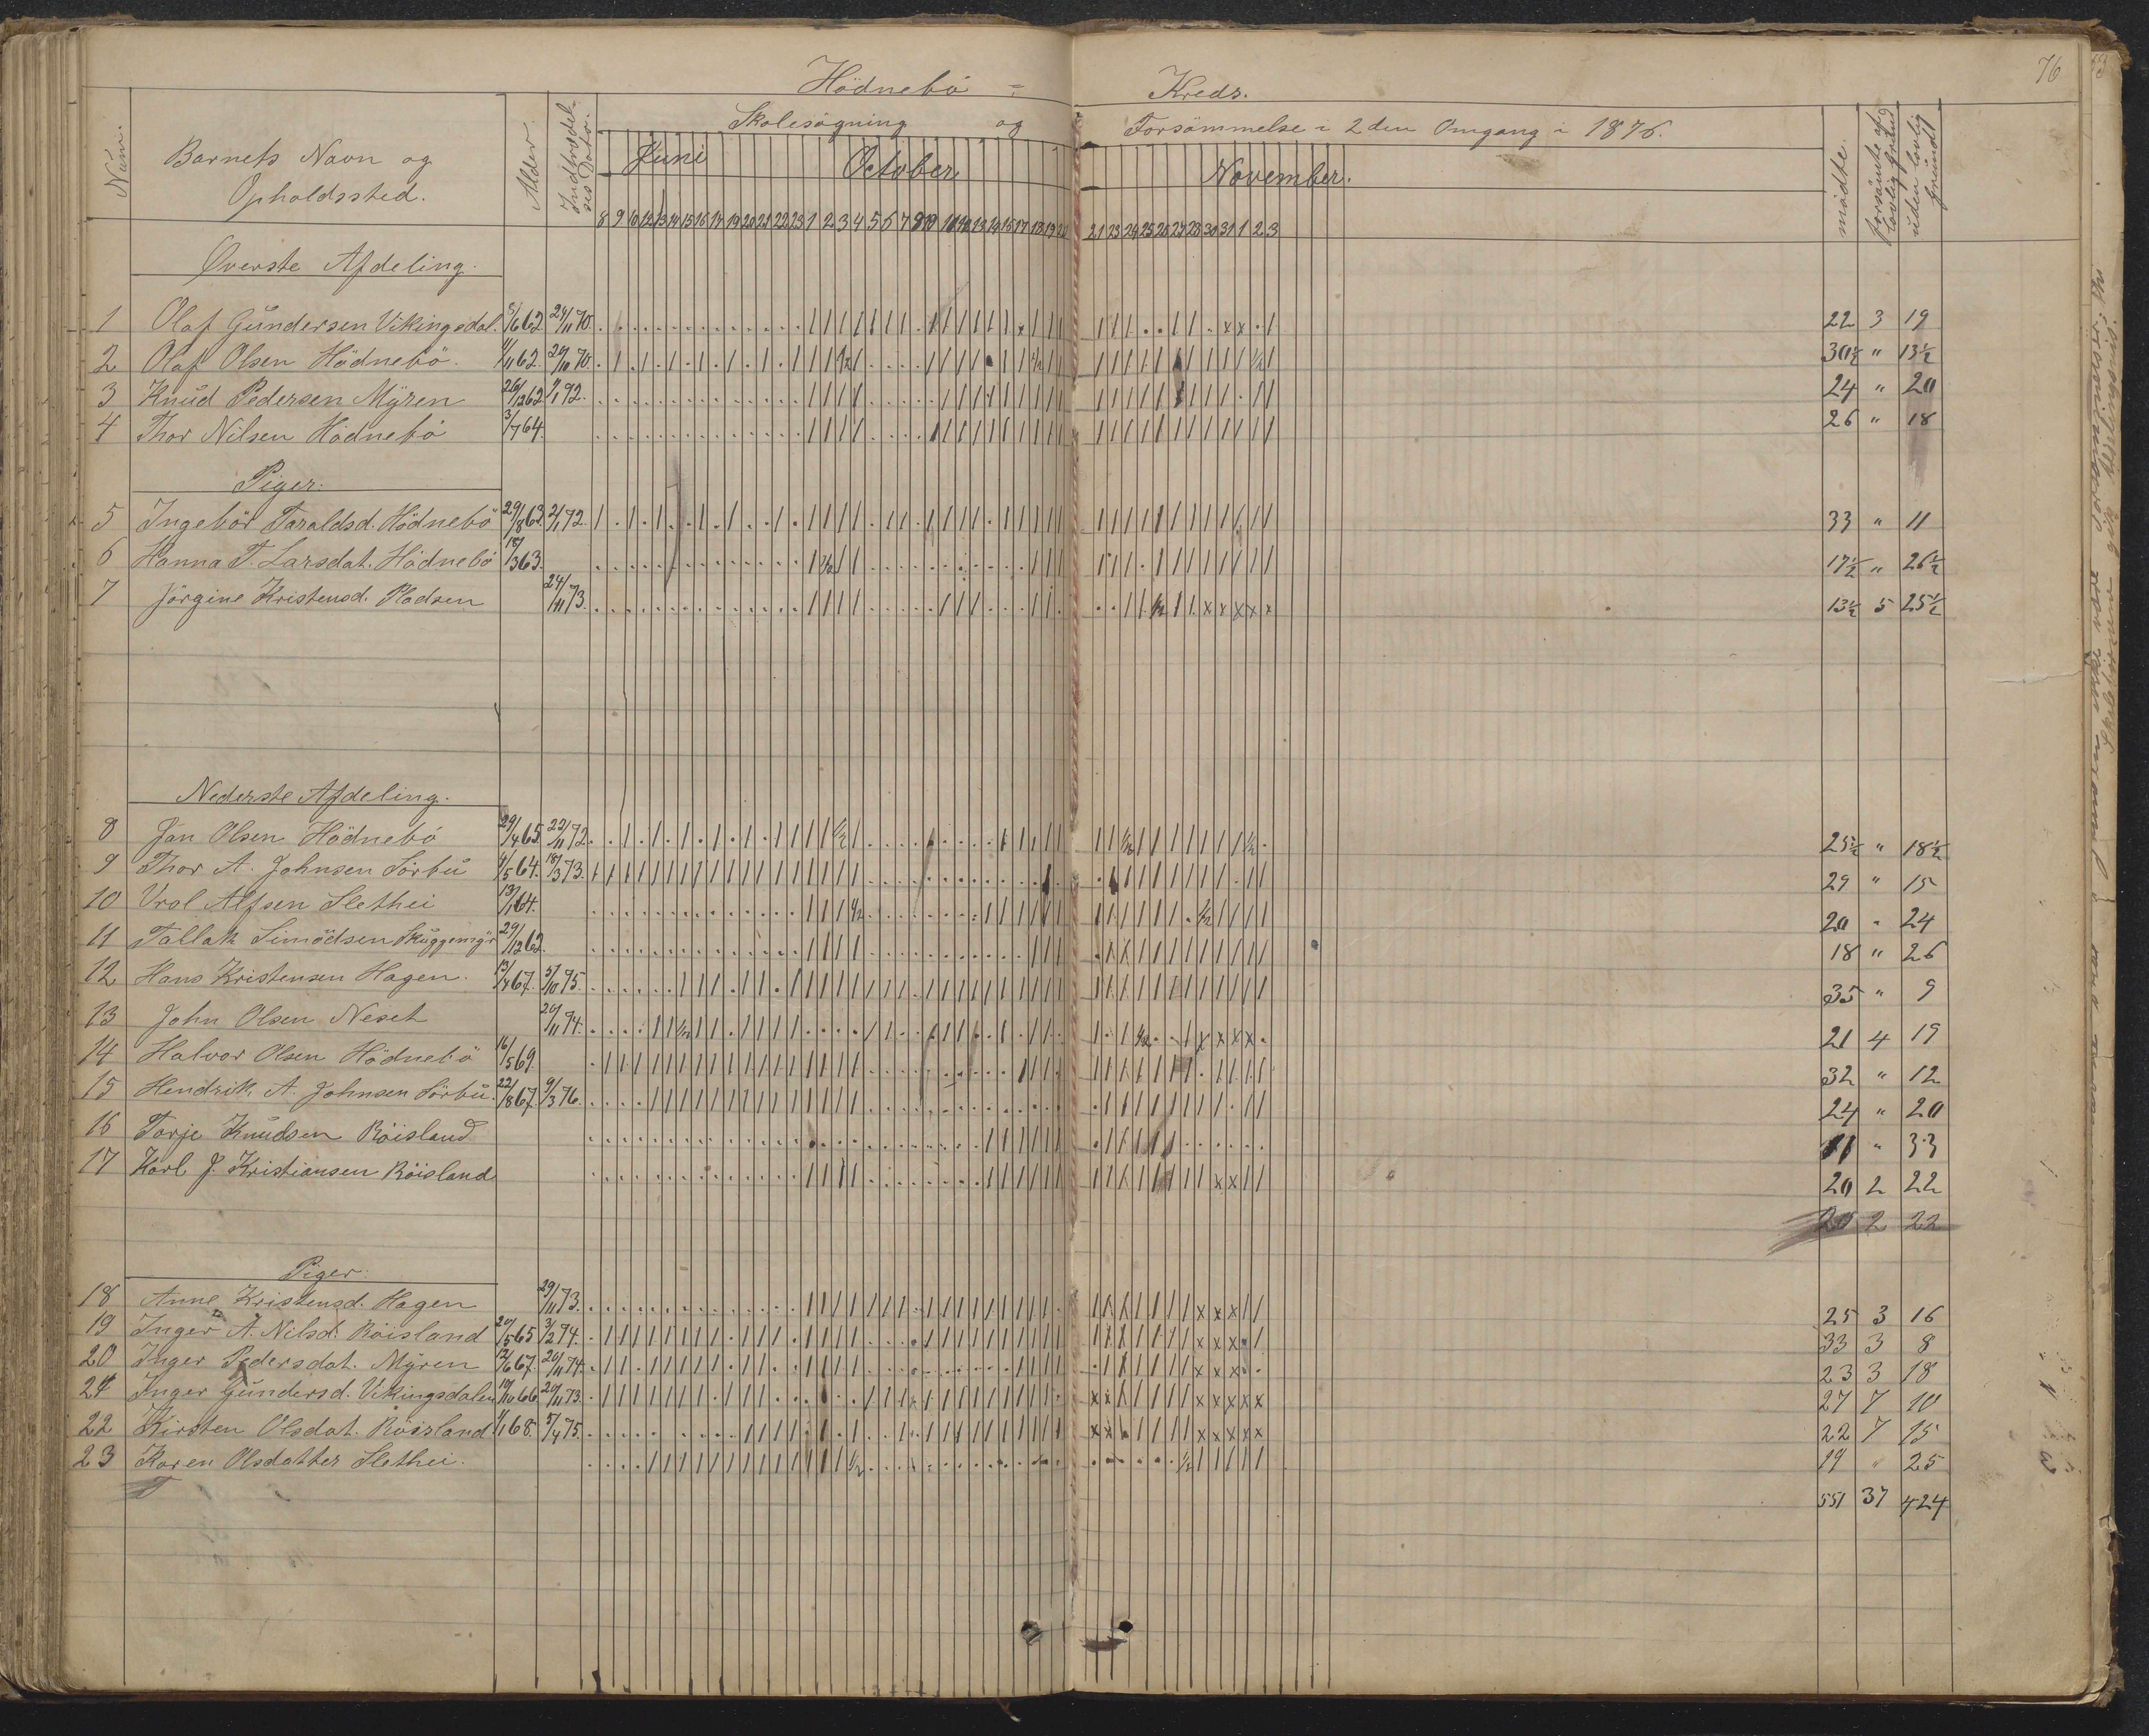 76
Hödnebö = Kreds.
Num. Barnets Navn og Opholdssted. Alder. Indtrædelses Dato. Skolesögning og Forsömmelse i 2den Omgang i 1876. mödte. forsömte af lovlig grund uden lovlig grund
Juni October November.
8 9 10 12 13 14 15 16 17 19 20 21 22 23 1 2 3 4 5 6 7 9 10 11 12 13 14 16 17 18 19 20 21 23 24 25 26 27 28 30 31 1 2 3
Øverste Afdeling.
1 Olaf Gundersen Vikingsdal. 5/6 62 24/11 70. 22 3 19
2 Olaf Olsen Hödnebö. 4/11 62. 24/11 70. 30½ " 13½
3 Knud Pedersen Myren 26/12 62 1/1 72. 24 " 20
4 Thor Nilsen Hödnebö 3/7 64. 26 " 18
Piger.
5 Ingebör Taraldsd. Hödnebö 29/8 63. 2/1 72. 33 " 11
6 Hanna T. Larsdat. Hödnebö 18/3 63. 17½ " 26½
7 Jörgine Kristensd. Pladsen 24/11 73. 13½ 5 25½
Nederste Afdeling.
8 Jan Olsen Hödnebö 29/4 65. 22/11 72. 25½ " 18½
9 Thor A. Johnsen Sörbu 4/5 64. 18/3 73. 29 " 15
10 Vrol Alfsen Slethei 13/1 64. 20 " 24
11 Tallak Simödsen 29/12 62. 18 " 26
12 Hans Kristensen Hagen. 13/4 67. 5/10 75. 35 " 9
13 John Olsen Neset 20/11 74. 21 4 19
14 Halvor Olsen Hödnebö 16/5 69. 32 " 12
15 Hendrik A. Johnsen Sörbu. 22/8 67. 9/3 76. 24 " 20
16 Torje Knudsen Röisland 11 " 33
17 Karl J. Kristiansen Röisland 20 2 22
20 2 22
Piger.
18 Anne Kristensd. Hagen 29/11 73. 25 3 16
19 Inger A. Nilsd. Röisland 20/5 65 3/2 74. 33 3 8
20 Inger Pedersdat. Myren 12/6 67. 20/11 74. 23 3 18
21 Inger Gundersd. Vikingsdalen 10/10 66. 20/11 73. 27 7 10
22 Kirsten Olsdat. Röisland 1/1 68. 5/4 75. 22 7 15
23 Karen Olsdatter Slethei. 19 " 25
551 37 424